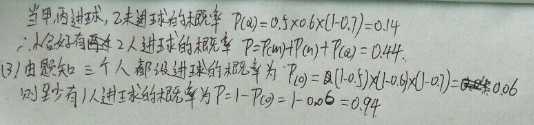 当甲、丙进球,乙未进球的概率 P(Q)=0.5×0.6×(1-0.7)=0.14
∴恰好有2人进球的概率 P=P(m)+P(n)+P(Q)=0.44.
(3)由题知 三个人都没进球的概率为 P(0)=(1-0.5)×(1-0.6)×(1-0.7)=0.06
则至少有1人进球的概率为P=1-P(0)=1-0.06=0.94